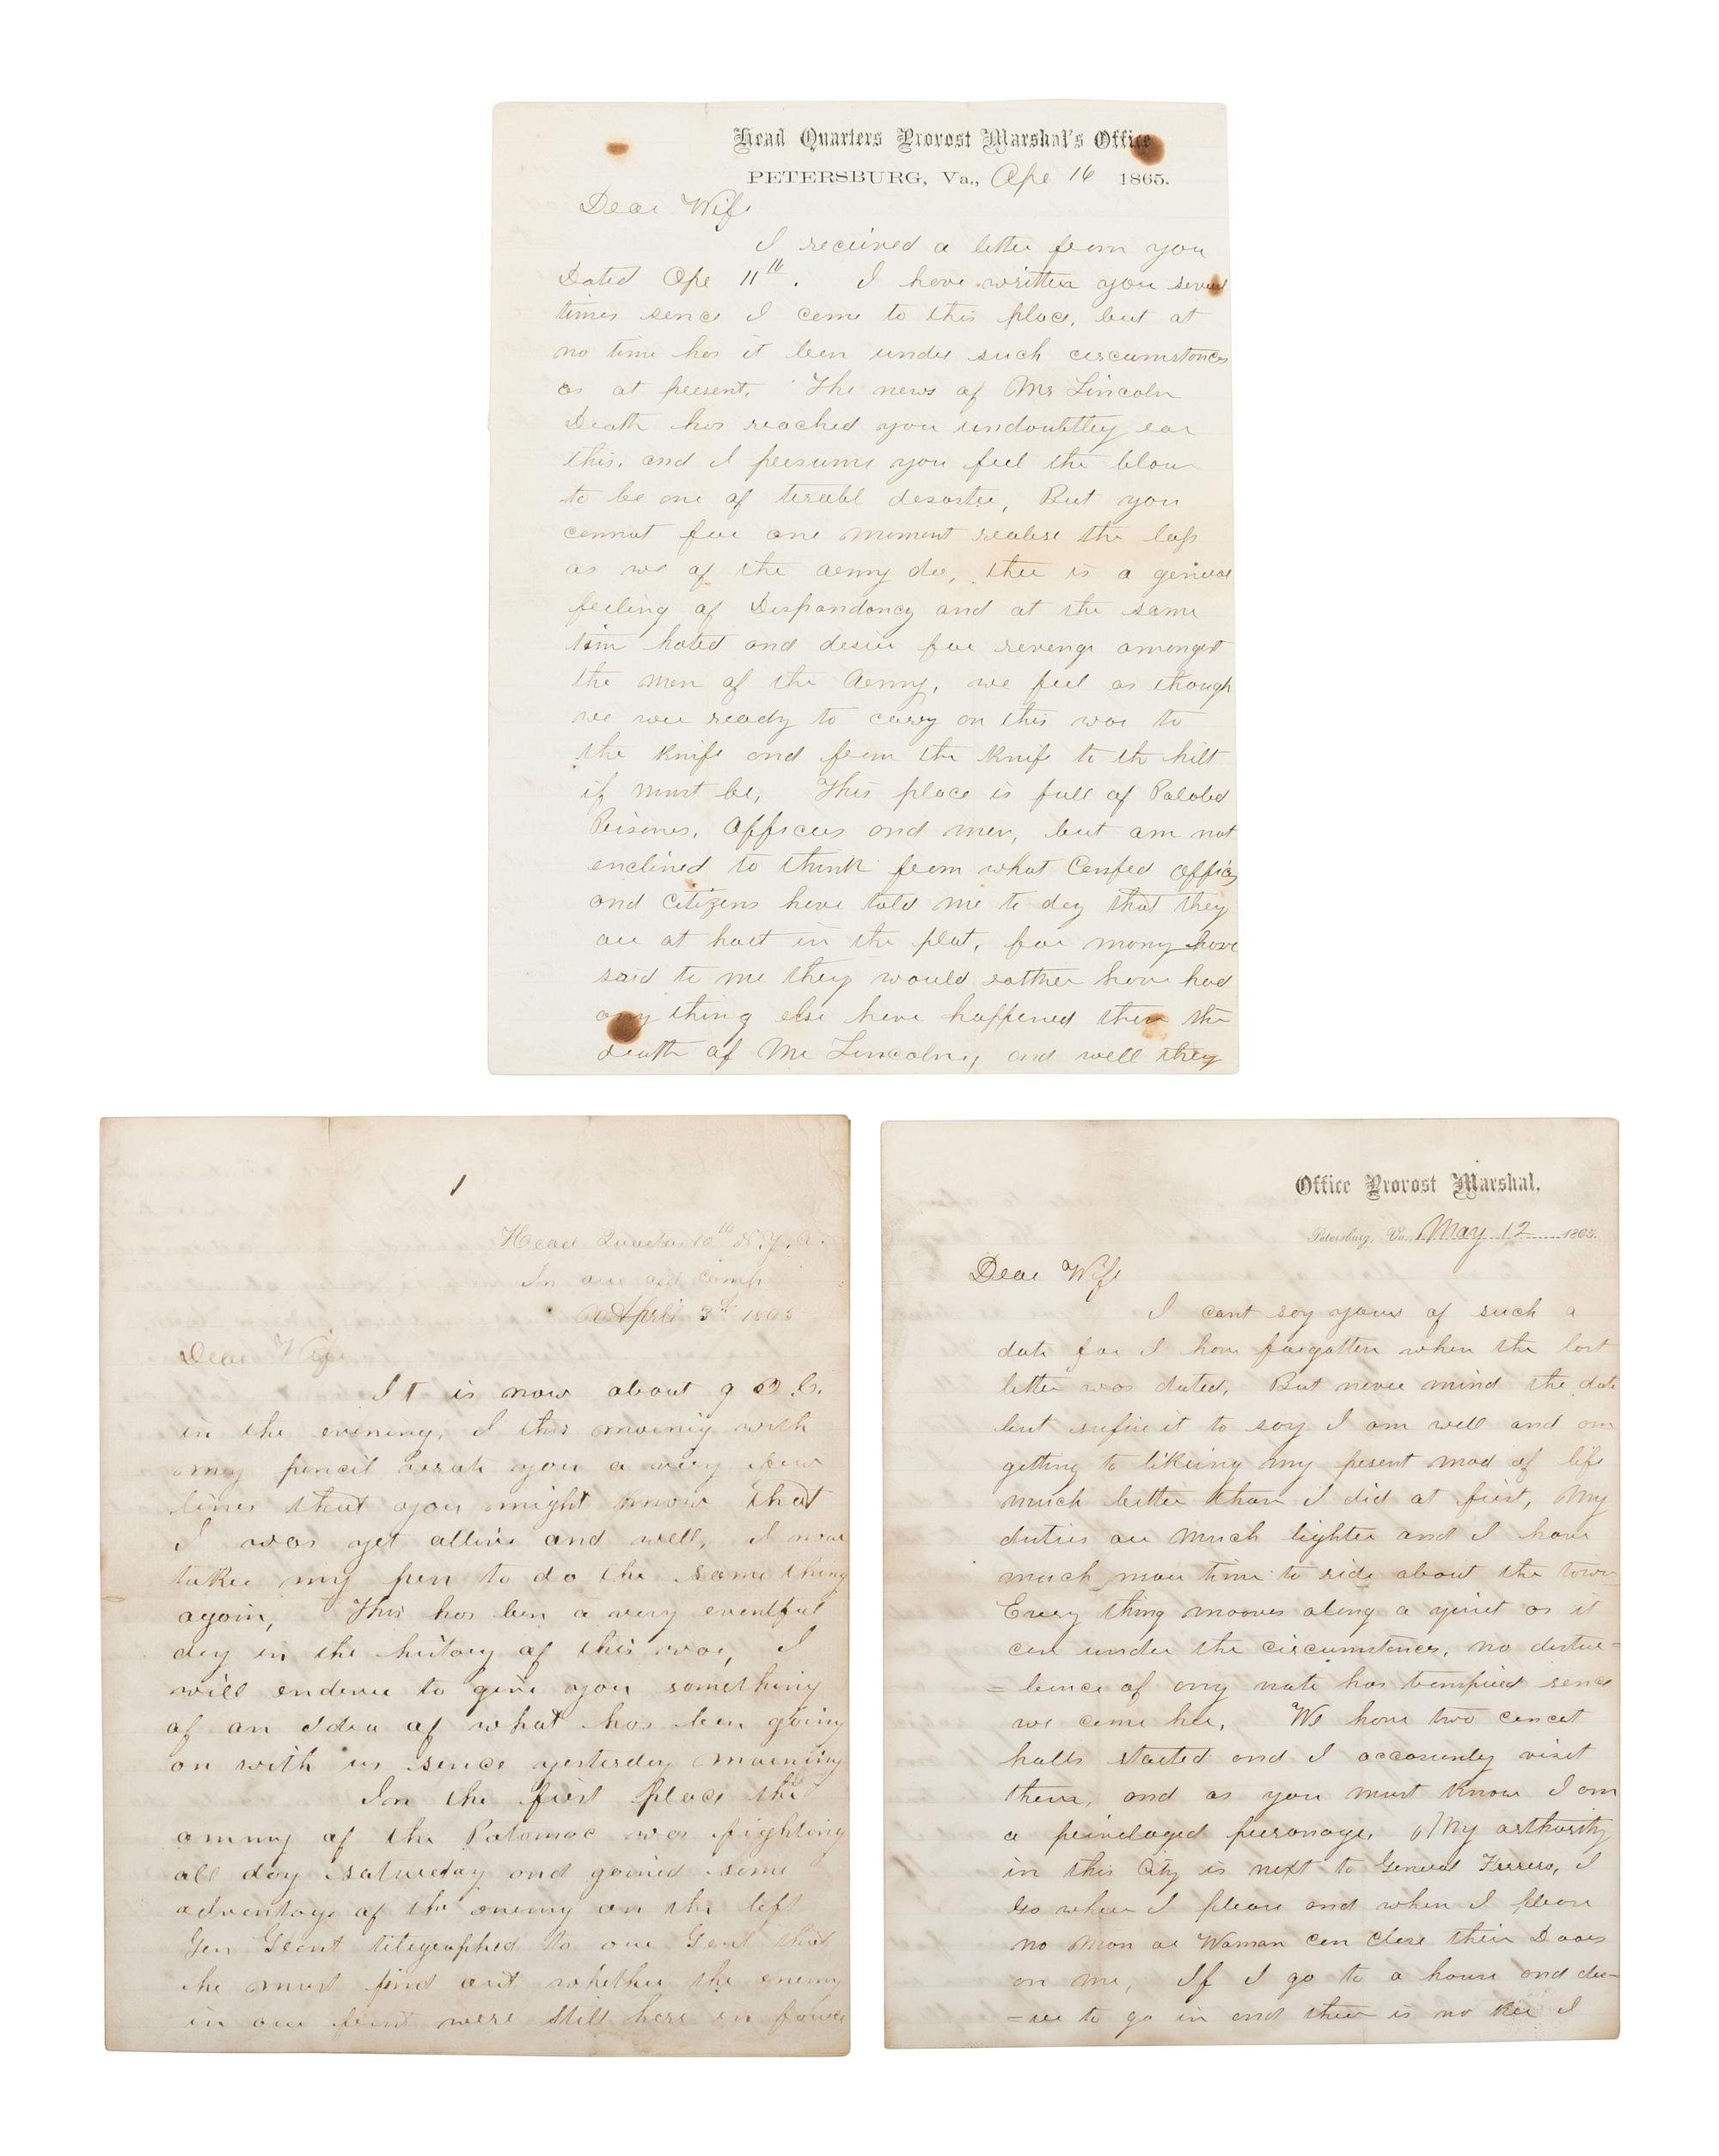 Head Quarters Provost Marshal's Office
PETERSBURG, Va., Ape 16 1865.
Dear Wife
I recieved a letter from you
Dated Ape 11th. I have written you sevral
times sence I came to this place, but at
no time has it been under such circumstances
as at present. The news of Mr Lincoln
Death has reached you undoubttley ear
this, and I presume you feel the blow
to be one of terabl desaster, But you
cannot for one moment realise the loss
as we of the army do, ther is a general
feeling of Dispondency and at the same
tim hated and desire for revenge amongst
the men of the Army, we feel as though
we wer ready to carry on this war to
the Knife and from the Knife to th hilt
if must be, This place is full of Paroled
Prisones, Officers and men, but am not
enclined to think from what Confed Offics
and Citizens have told me to day that they
are at hart in the plot, for many have
said to me they would rather have had
any thing else have happened then the
death of Mr Lincoln, and well they
1
Head Quarters 10th N.Y.A.
In our old Camp
April 3d 1865
Dear Wife
It is now about 9 O.C.
in the evening, I this morning with
my pencil wrote you a very few
lines that you might know that
I was yet allive and well, I now
take my pen to do the same thing
again, This has ben a very eventful
day in the history of this war, I
will endever to give you something
of an Idea of what has ben going
on with us sence yesterday morning
In the first place the
ammy of the Potomac was fighting
all day Saturday and gained some
advantage of the enemy on the left
Gen Grant telegraphed to our Genl that
he must find out whether the enemy
in our front were still here in force
Office Provost Marshal.
Petersburg, Va., May 12 1865.
Dear Wife
I cant say yours of such a
date for I have forgotten when the last
letter was dated, But never mind the date
but sufice it to say I am well and am
getting to likeing my present mod of life
much better than I did at first, My
duties are much lighter and I have
much more time to ride about the town
Every thing mooves along a quiet as it
can under the circumstances, no distur=
=bence of any note has sence
we came her, We have two concert
halls started and I visit
them, and as you must Know I am
a personage, My arthority
in this City is next to General Ferrero, I
Go wher I please and when I please
no Man or Woman can Close their Doors
on me, If I go to a house and des=
=ire to go in and ther is no Kee I